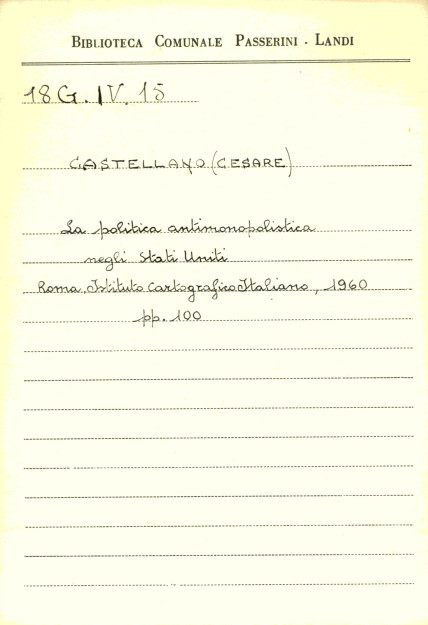 BIBLIOTECA COMUNALE PASSERINI - LANDI
18 G. IV. 15
CASTELLANO (CESARE)
La politica antimonopolistica
negli Stati Uniti
Roma. Istituto Cartografico Italiano, 1960
pp. 100